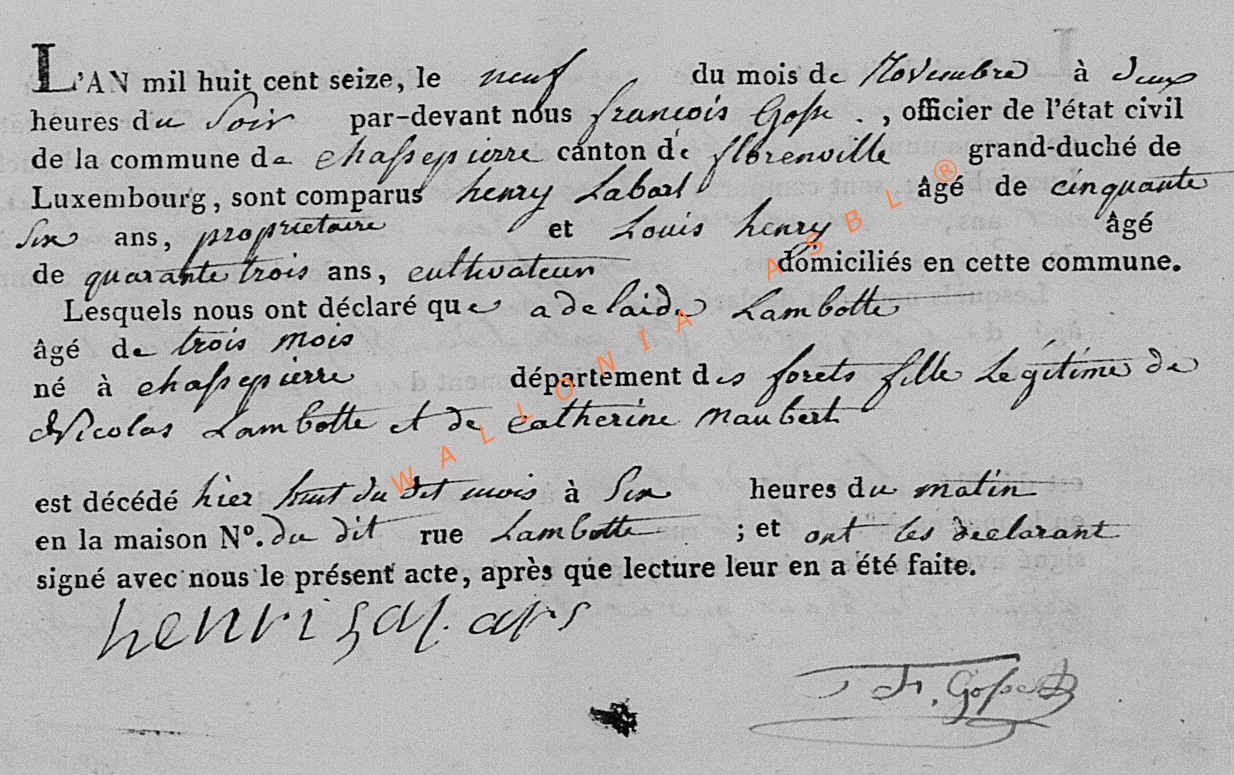 L'AN mil huit cent seize, le neuf du mois de Novembre à deux
heures du Soir par-devant nous françois Gosse, officier de l'état civil
de la commune de chassepierre canton de florenville grand-duché de
Luxembourg, sont comparus henry Labarl âgé de cinquante
Six ans, proprietaire et Louis henry âgé
de quarante trois ans, cultivateur domiciliés en cette commune.
Lesquels nous ont déclaré que adelaide Lambotte
âgé de trois mois
né à chassepierre département des forets fille Legitime de
Nicolas Lambotte et de catherine Naubert
est décédé hier huit du dit mois à Six heures du matin
en la maison N°. du dit rue Lambotte ; et ont les declarant
signé avec nous le présent acte, après que lecture leur en a été faite.
henri
fr. Gosse
WALLONIA ASBL ®